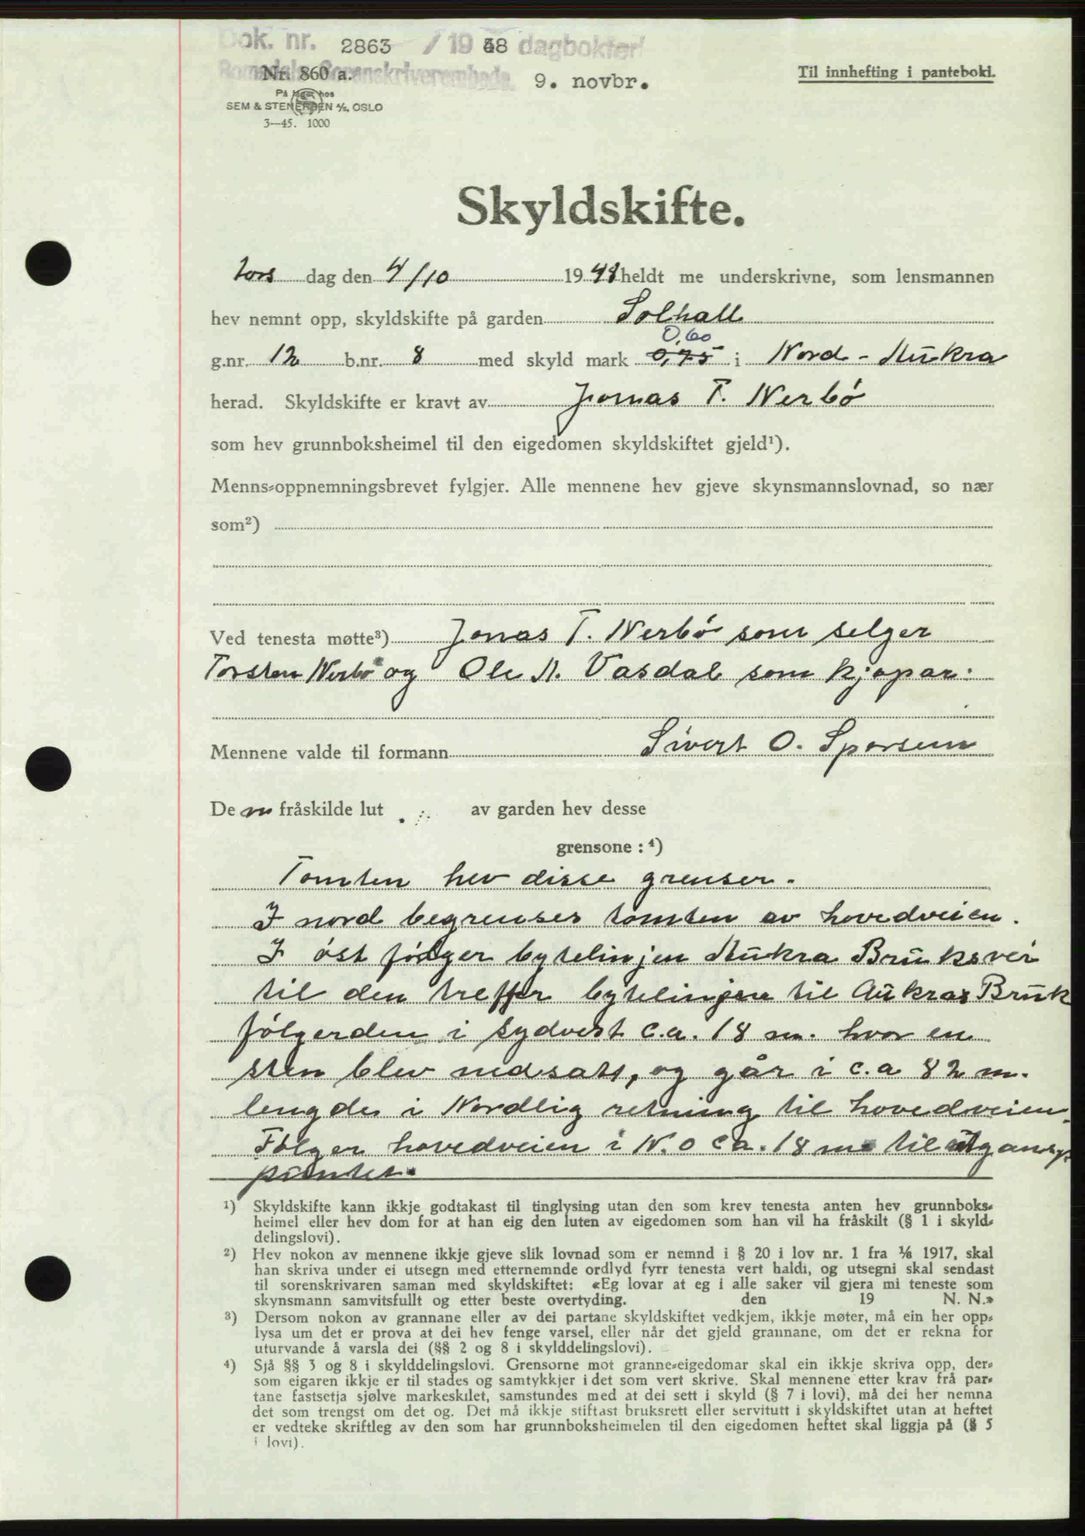 Dok. nr. 2863 / 1948 dagbokført
Romsdals Sorenskriverembede.
9. novbr.
Nr. 860 a.
På lager hos
SEM & STENERSEN A/S, OSLO
3—45. 1000
Til innhefting i pantebokl.
Skyldskifte.
tors dag den 4/10 1948 heldt me underskrivne, som lensmannen
hev nemnt opp, skyldskifte på garden Solhall
0,60
g.nr. 12 b.nr. 8 med skyld mark 0,75 i Nord-Aukra
herad. Skyldskifte er kravt av Jonas T. Nerbö
som hev grunnboksheimel til den eigedomen skyldskiftet gjeld¹).
Menns-oppnemningsbrevet fylgjer. Alle mennene hev gjeve skynsmannslovnad, so nær
som²)
Ved tenesta møtte³) Jonas T. Nerbö som selger
Torsten Nerbö og Ole A. Vasdal som kjøpar.
Mennene valde til formann Sivert O. Sporsem
De m fråskilde lut av garden hev desse
grensone : ⁴)
Tomten hev disse grenser.
I nord begrenses tomten av hovedveien.
I öst fölger bytelinjen Aukra Bruksvei
til den treffer bytelinjene til Aukras Bruk
fölger den i sydvest c.a. 18 m. hvor en
sten blev nedsatt, og går i c.a 82 m.
lengde i Nordlig retning til hovedveien.
Fölger hovedveien i N.O ca. 18 m til utgangs
punktet.
¹) Skyldskifte kann ikkje godtakast til tinglysing utan den som krev tenesta anten hev grunnboks-
heimel eller hev dom for at han eig den luten av eigedomen som han vil ha fråskilt (§ 1 i skyld-
delingslovi).
²) Hev nokon av mennene ikkje gjeve slik lovnad som er nemnd i § 20 i lov nr. 1 fra 1/6 1917, skal
han skriva under ei utsegn med etternemnde ordlyd fyrr tenesta vert haldi, og utsegni skal sendast
til sorenskrivaren saman med skyldskiftet: «Eg lovar at eg i alle saker vil gjera mi teneste som
skynsmann samvitsfullt og etter beste overtyding. den 19 N. N.»
³) Dersom nokon av grannane eller av dei partane skyldskiftet vedkjem, ikkje møter, må ein her opp-
lysa um det er prova at dei hev fenge varsel, eller når det gjeld grannane, om det er rekna for
uturvande å varsla dei (§§ 2 og 8 i skylddelingslovi).
⁴) Sjå §§ 3 og 8 i skylddelingslovi. Grensorne mot granne-eigedomar skal ein ikkje skriva opp, der-
som eigaren ikkje er til stades og samtykkjer i det som vert skrive. Skal mennene etter krav frå par-
tane fastsetja sjølve markeskilet, samstundes med at dei sett i skyld (§ 7 i lovi), må dei her nemna
det som trengst om det og. Det må ikkje stiftast bruksrett eller servitutt i skyldskiftet utan at heftet
er vedteke skriftleg av den som har grunnboksheimelen til den eigedomen heftet skal liggja på (§ 5
i lovi).